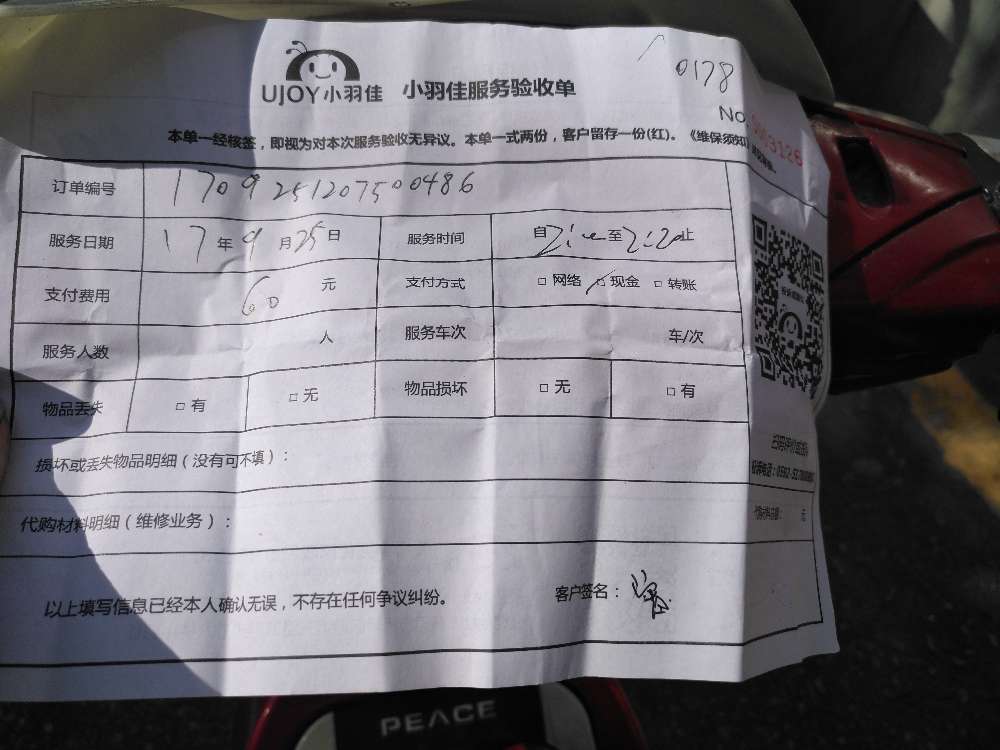 UJOY小羽佳 小羽佳服务验收单
0178
No.
本单一经核签，即视为对本次服务验收无异议。本单一式两份，客户留存一份(红)。《维保须知》
订单编号 1709251207500486
服务日期 17年9月25日 服务时间 自 至 止
支付费用 60 元 支付方式 □ 网络 □ 现金 □ 转账
服务人数 人 服务车次 车/次
物品丢失 □ 有 □ 无 物品损坏 □ 无 □ 有
损坏或丢失物品明细（没有可不填）：
代购材料明细（维修业务）： 元
以上填写信息已经本人确认无误，不存在任何争议纠纷。 客户签名：
PEACE